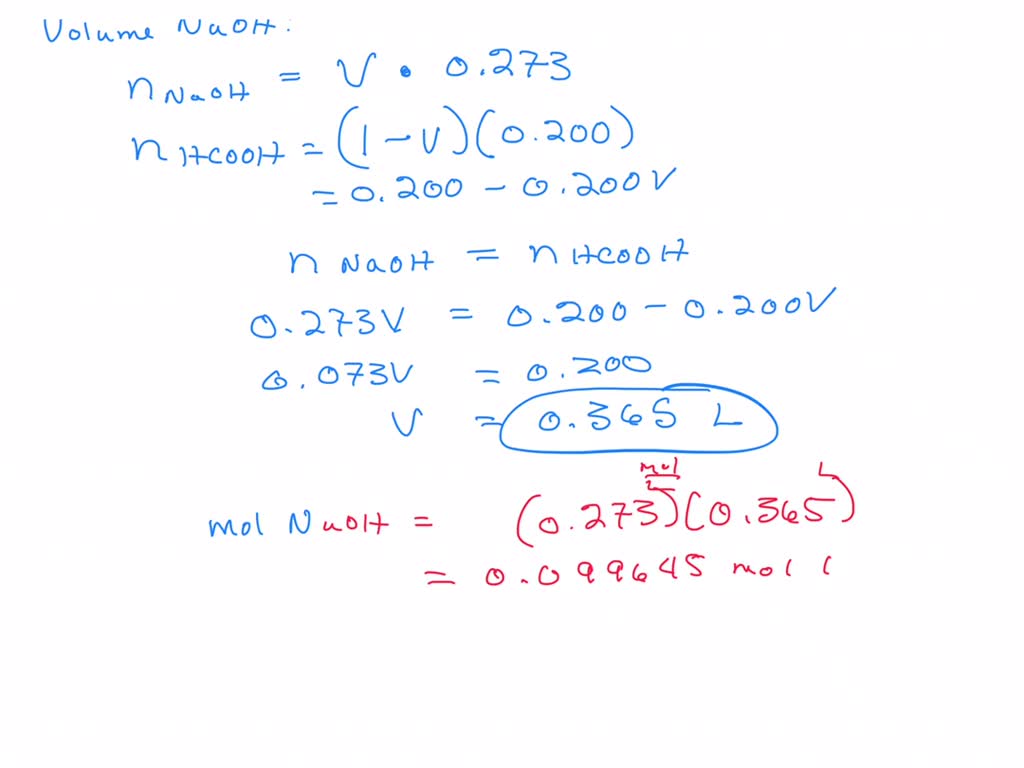 Volume NaOH:
n NaOH = V • 0.273
n HCOOH = (1-V)(0.200)
= 0.200 - 0.200V
n NaOH = n HCOOH
0.273V = 0.200 - 0.200V
0.073V = 0.200
V = 0.365 L
mol L
mol NaOH = (0.273)(0.365)
= 0.099645 mol (